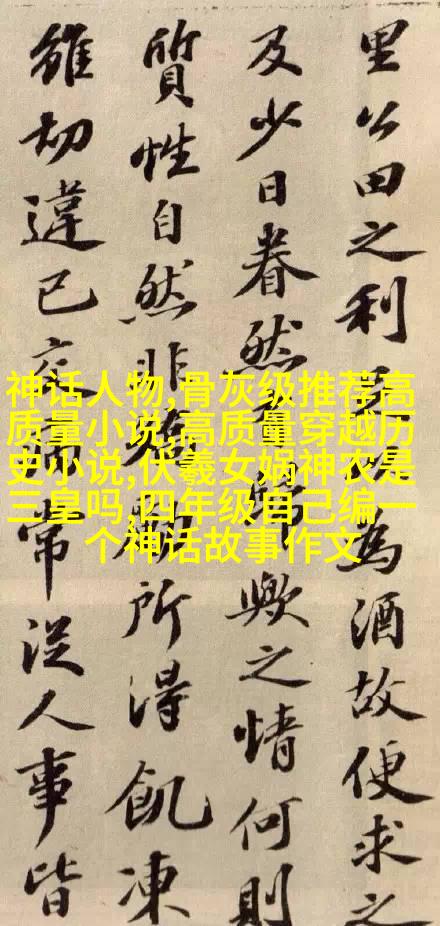 里公田之利為酒故便求之
及少日眷然歟之情何則
質性自然非矯勵所得飢凍
雖切違己交病常從人事皆
神话人物,骨灰级推荐高
质量小说,高质量穿越历
史小说,伏羲女娲神农是
三皇吗,四年级自己编一
个神话故事作文